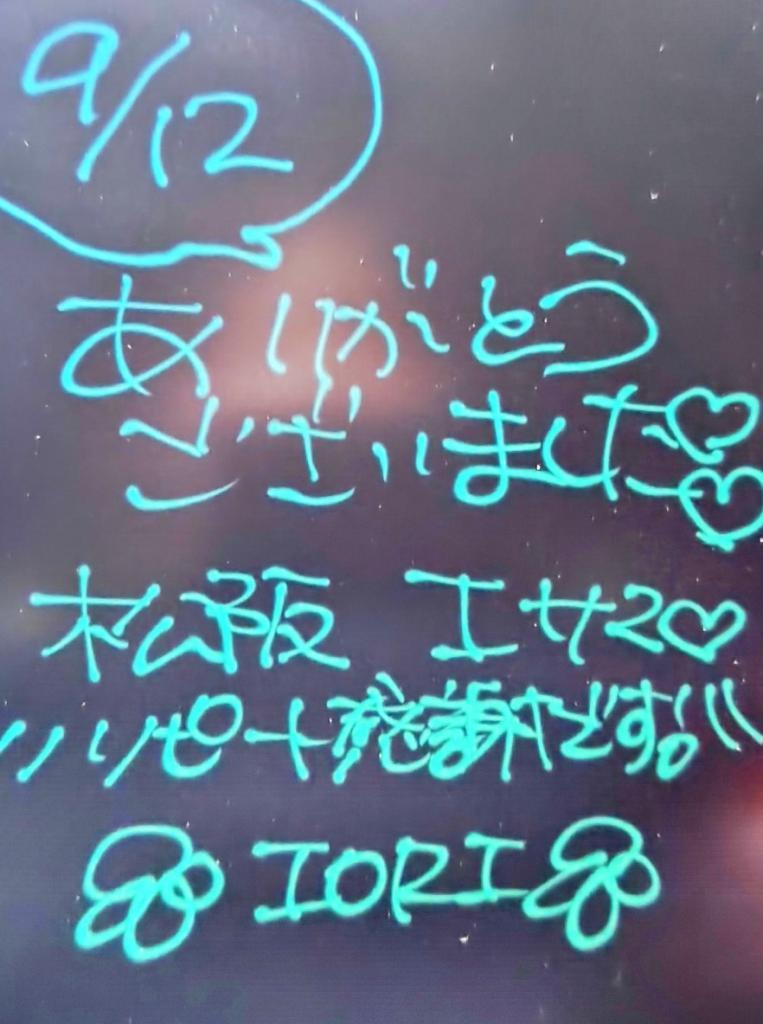 9/12
ありがとう
ございました♡♡
松阪 エサ2♡
リピート感謝です!!
IORI